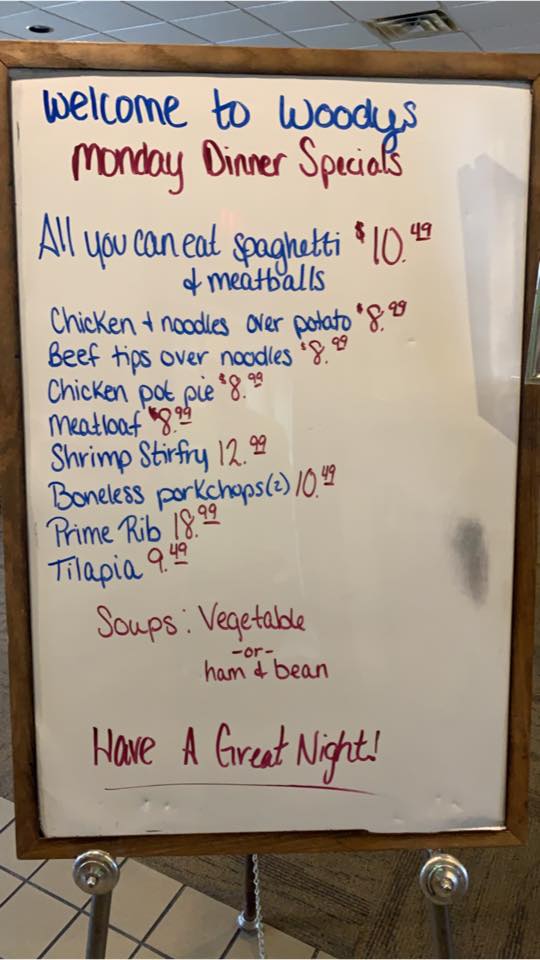 Welcome to Woodys
Monday Dinner Specials
All you can eat spaghetti $10.49
& meatballs
Chicken & noodles over potato $8.99
Beef tips over noodles $8.99
Chicken pot pie $8.99
Meatloaf $8.99
Shrimp Stirfry 12.99
Boneless porkchops(2) 10.49
Prime Rib 18.99
Tilapia 9.49
Soups: Vegetable
-or-
ham & bean
Have A Great Night!